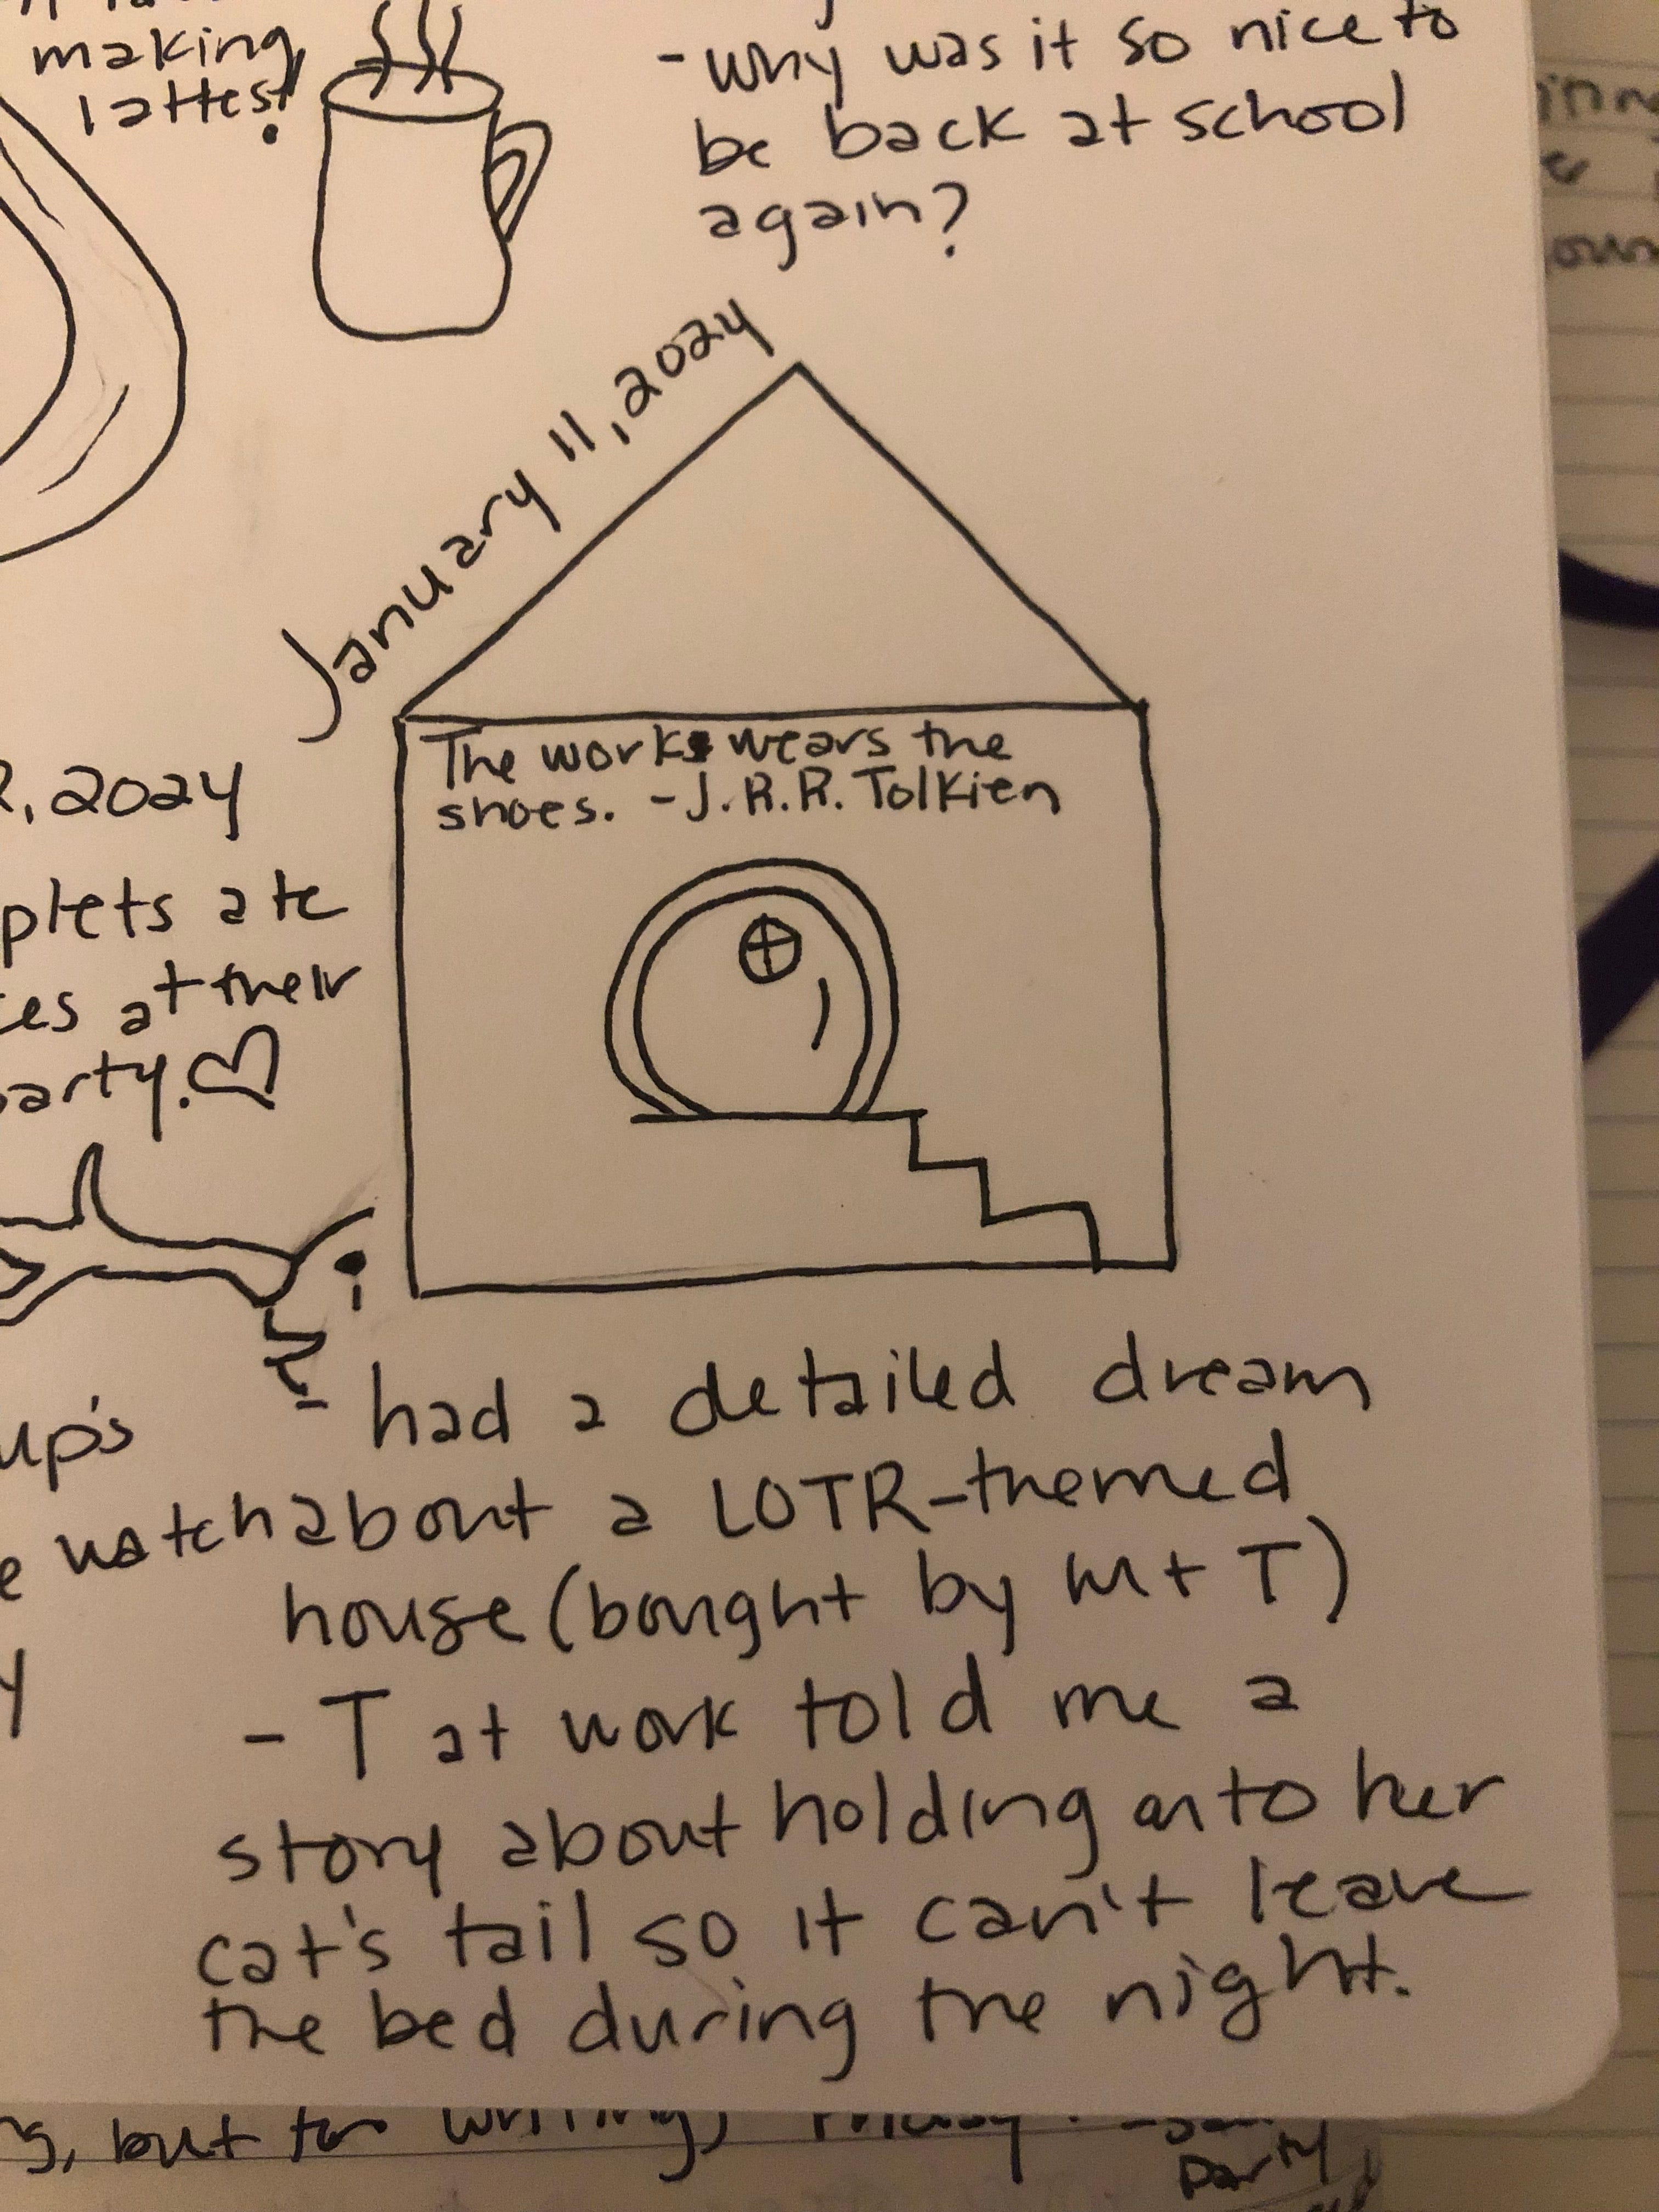 making
lattes!
- why was it so nice to
be back at school
again?
January 11, 2024
The work wears the
shoes. - J.R.R. Tolkien
, 2024
ate
at their
- had a detailed dream
about a LOTR-themed
house (bought by M + T)
- T at work told me a
story about holding onto her
cat's tail so it can't leave
the bed during the night.
watch
, but for writing,
party